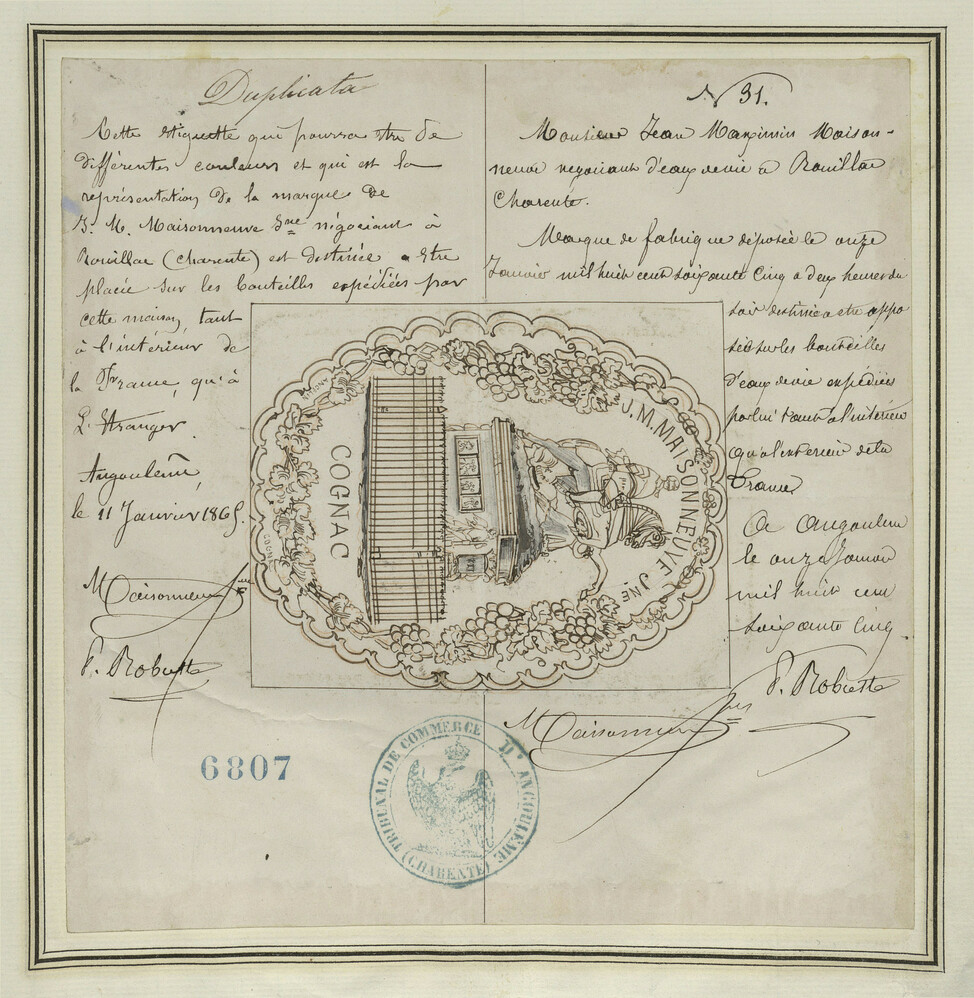 Duplicata
Cette étiquette qui pourra être de
différentes couleurs et qui est la
représentation de la marque de
J. M. Maisonneuve Jne négociant à
Rouillac (Charente) est destinée a être
placée sur les bouteilles expédiées par
cette maison, tant
à l'intérieur de
la France, qu'à
L'Etranger
Angoulême,
le 11 Janvier 1865.
Maisonneuve Jne
F. Robuste
N° 31.
Monsieur Jean Maximin Maison-
neuve négociant d'eaux de vie à Rouillac
Charente.
Marque de fabrique déposée le onze
Janvier mil huit cent soixante cinq a deux heures du
soir destinée a etre appo
sée sur les bouteilles
d'eaux de vie expédiées
par lui tant a l'intérieur
qu'a l'exterieur de la
France
A Angoulême
le onze Janvier
mil huit cent
soixante cinq
F. Robuste
Maisonneuve Jne
J.M. MAISONNEUVE JNE
COGNAC
6807
TRIBUNAL DE COMMERCE D'ANGOULEME
(CHARENTE)